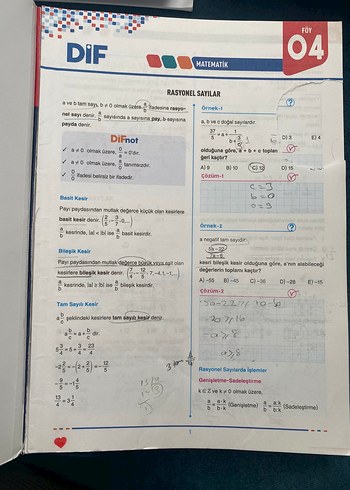 DİF
MATEMATİK
FÖY
04
RASYONEL SAYILAR
a ve b tam sayı, b ≠ 0 olmak üzere, a/b ifadesine rasyo-
nel sayı denir. a/b sayısında a sayısına pay, b sayısına
payda denir.
DİFnot
✓ a ≠ 0 olmak üzere, 0/a = 0'dır.
✓ a ≠ 0 olmak üzere, a/0 tanımsızdır.
✓ 0/0 ifadesi belirsiz bir ifadedir.
Basit Kesir
Payı paydasından mutlak değerce küçük olan kesirlere
basit kesir denir.
a/b kesrinde, |a| < |b| ise a/b basit kesirdir.
Bileşik Kesir
Payı paydasından mutlak değerce büyük veya eşit olan
kesirlere bileşik kesir denir.
a/b kesrinde, |a| ≥ |b| ise a/b bileşik kesirdir.
Tam Sayılı Kesir
a b/c şeklindeki kesirlere tam sayılı kesir denir.
a b/c = a + b/c dir.
5 3/4 = 5 + 3/4 = 23/4
-2 2/5 = -(2 + 2/5) = -12/5
-9/5 = -1 4/5
13/4 = 3 1/4
Örnek-1
a, b ve c doğal sayılardır.
olduğuna göre, a + b + c toplamı
kaçtır?
A) 9 B) 10 C) 12 D) 15
D) 3 E) 4
Çözüm-1
c = 3
b = 0
Örnek-2
a negatif tam sayıdır.
kesri bileşik kesir olduğuna göre, a'nın alabileceği
değerlerin toplamı kaçtır?
A) -55 B) -45 C) -36 D) -28 E) -15
Çözüm-2
Rasyonel Sayılarda İşlemler
Genişletme-Sadeleştirme
k ∈ Z ve k ≠ 0 olmak üzere,
a/b = a·k/b·k (Genişletme) a/b = a:k/b:k (Sadeleştirme)
1